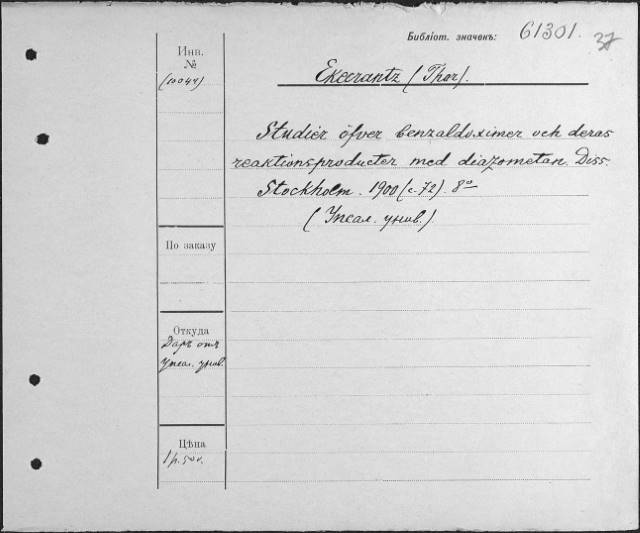 Библіот. значекъ: 61301. 37
Инв.
№
Ekecrantz (Thor).
Studier öfver benzaldoximer och deras
reaktionsproducter med diazometan. Diss.
Stockholm. 1900 (с. 72). 8°
(Упсал. унив.)
По заказу
Откуда
Даръ отъ
Упсал. унив.
Цѣна
1 р. 50 к.